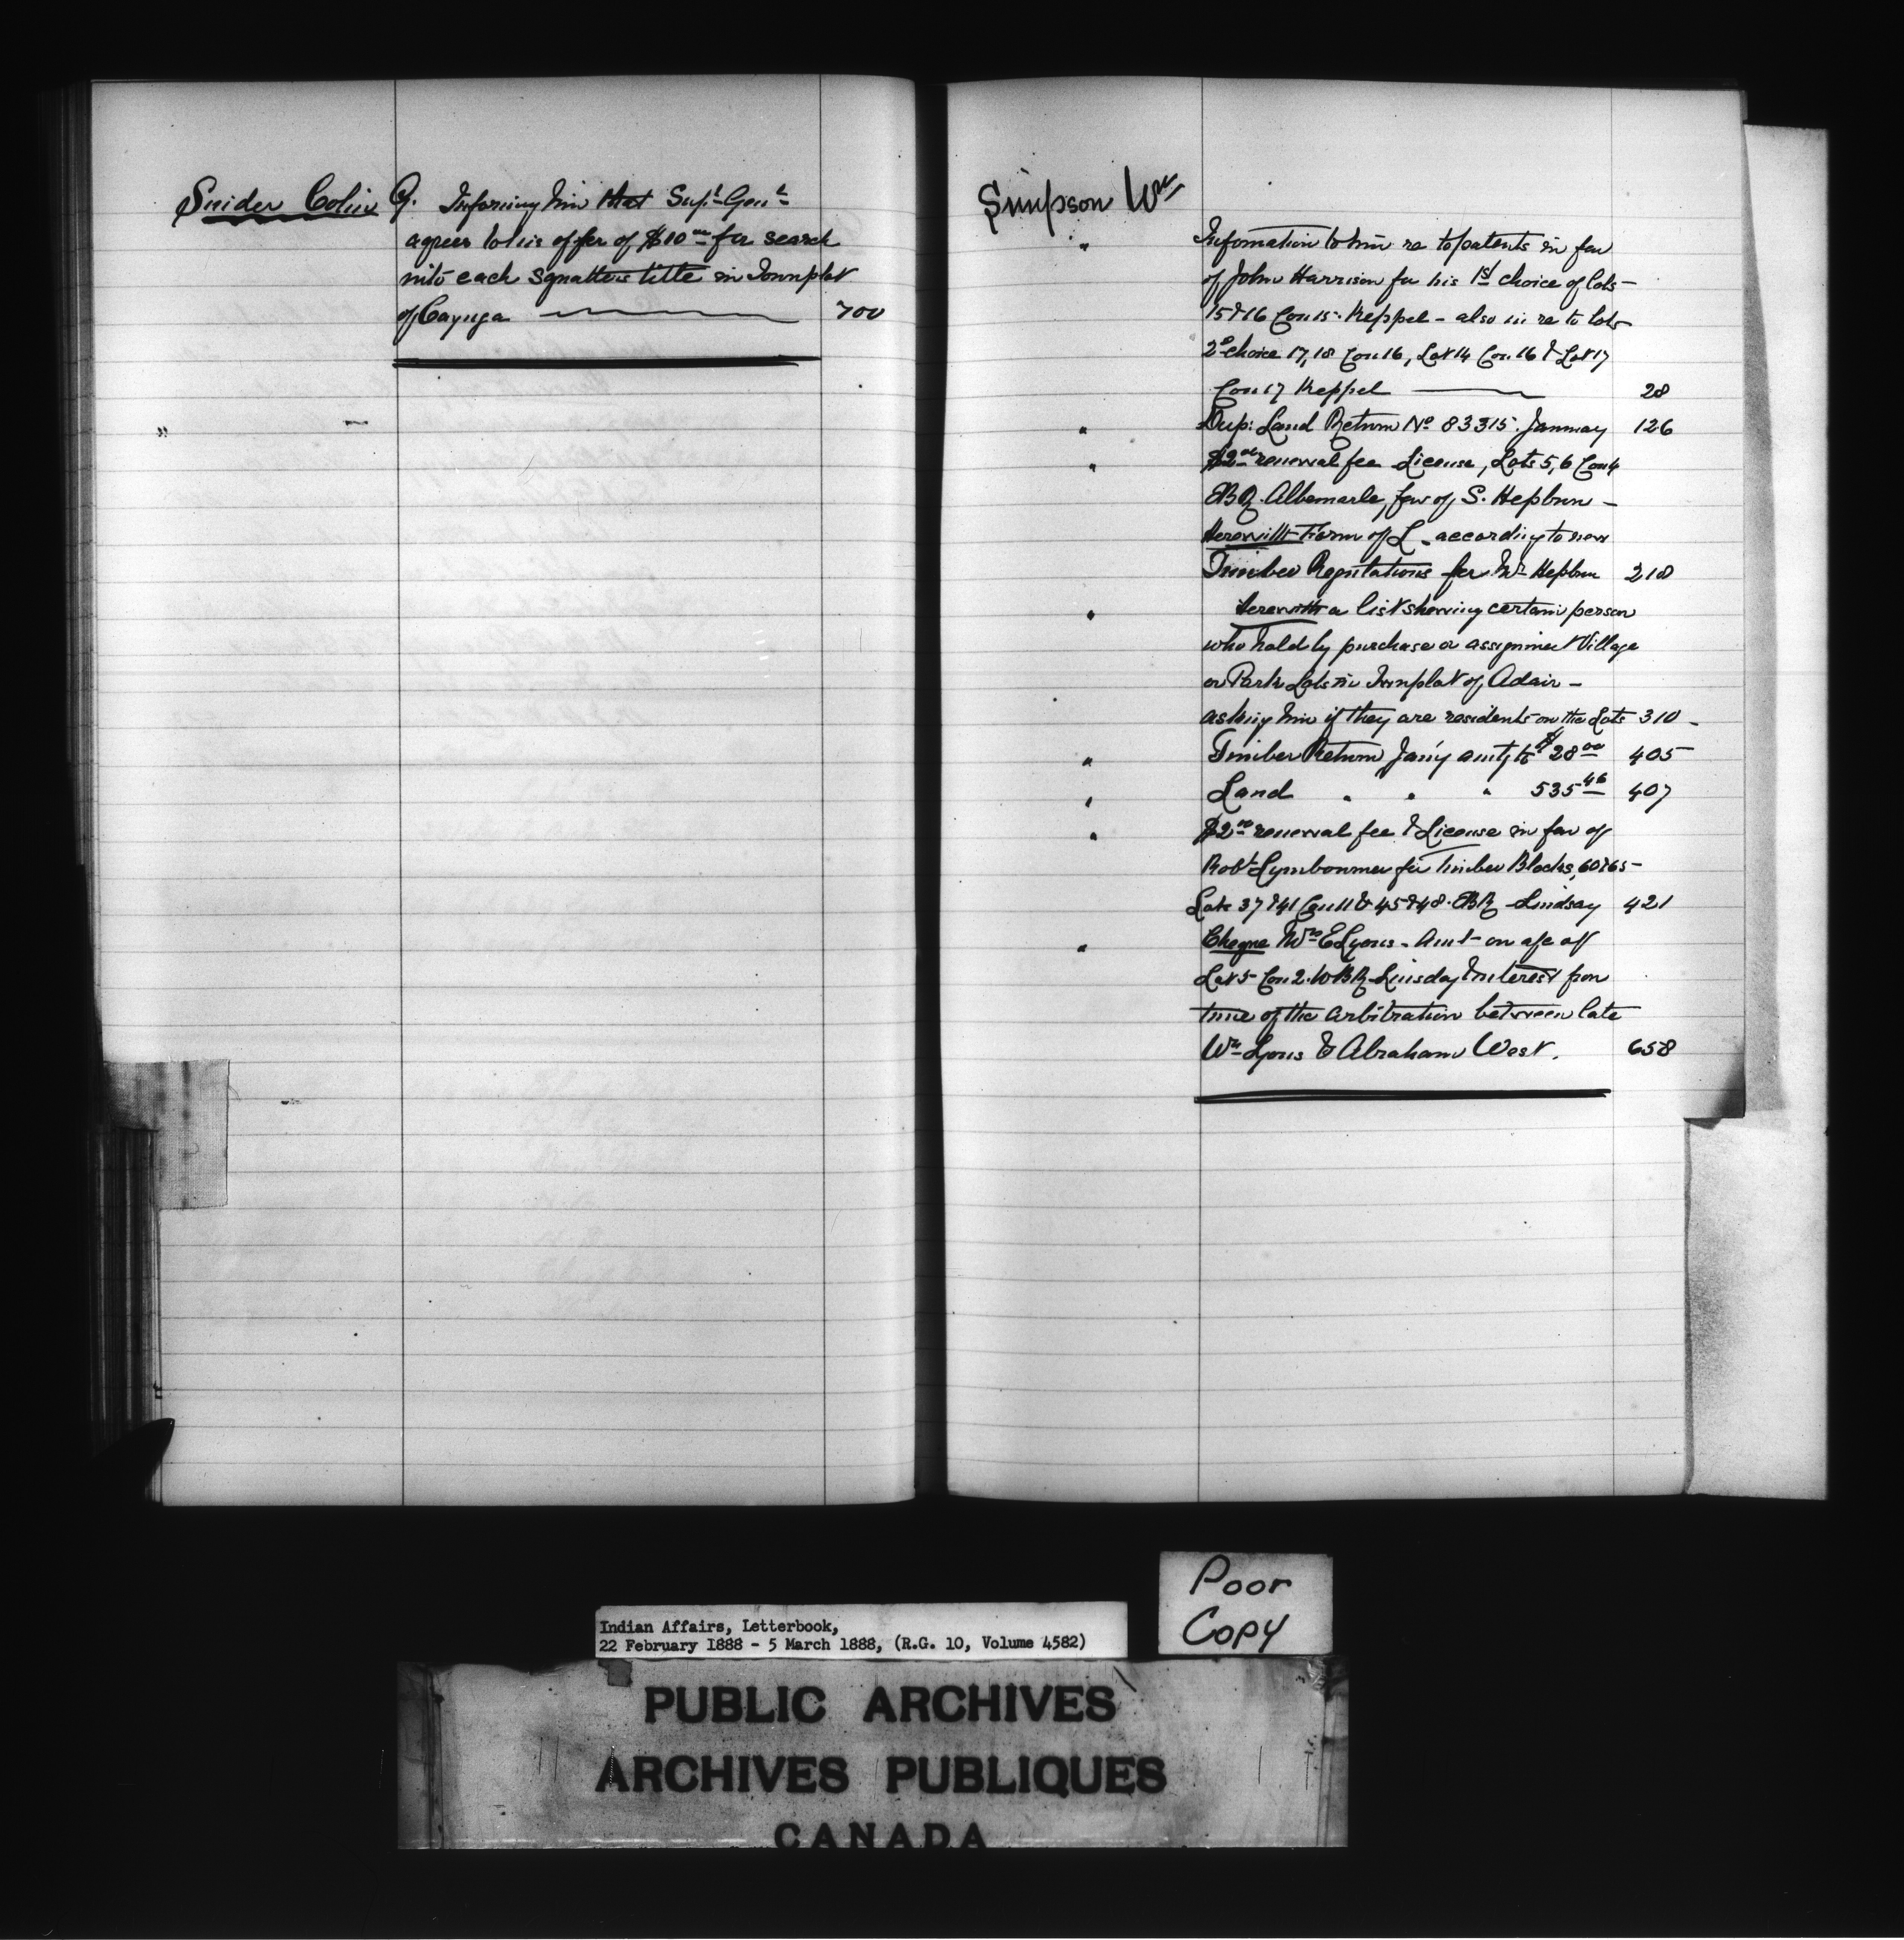 Snider Colin G. Informing him that Sup.t Gen.l
agrees to his offer of $10.00 for search
into each squatters title in Townplot
of Cayuga 700
"
Simpson Wm
" Information to him re to patents in fav
of John Harrison for his 1st choice of lots -
15 & 16 Con 15. Keppel - also in re to lots
2d choice 17, 18 Con 16, Lot 14 Con. 16 & Lot 17
Con 17 Keppel 28
" Dup: Land Return No 83315. January 126
" $2.00 renewal fee License, Lots 5, 6 Con 4
EBR. Albemarle, fav of S. Hepburn -
Herewith Form of L. according to new
Timber Regulations for Mr Hepburn 218
" Herewith a list showing certain person
who hold by purchase or assignment Village
or Park Lots in Townplot of Adair -
asking him if they are residents on the Lots 310 -
" Timber Return Jan'y amt'g to $28.00 405
" Land " " " 535.46 407
" $2.00 renewal fee & License in fav of
Robt Lymbourner for Timber Blocks, 60 & 65 -
Lots 37 & 41 Con 11 & 45 & 48. EBR Lindsay 421
" Cheque Mrs E Lyons. Amt on a/c of
Lot 5 Con 2. WBR Linsday & interest from
time of the arbitration between late
Wm Lyons & Abraham West. 658
Poor
Copy
Indian Affairs, Letterbook,
22 February 1888 - 5 March 1888, (R.G. 10, Volume 4582)
PUBLIC ARCHIVES
ARCHIVES PUBLIQUES
CANADA